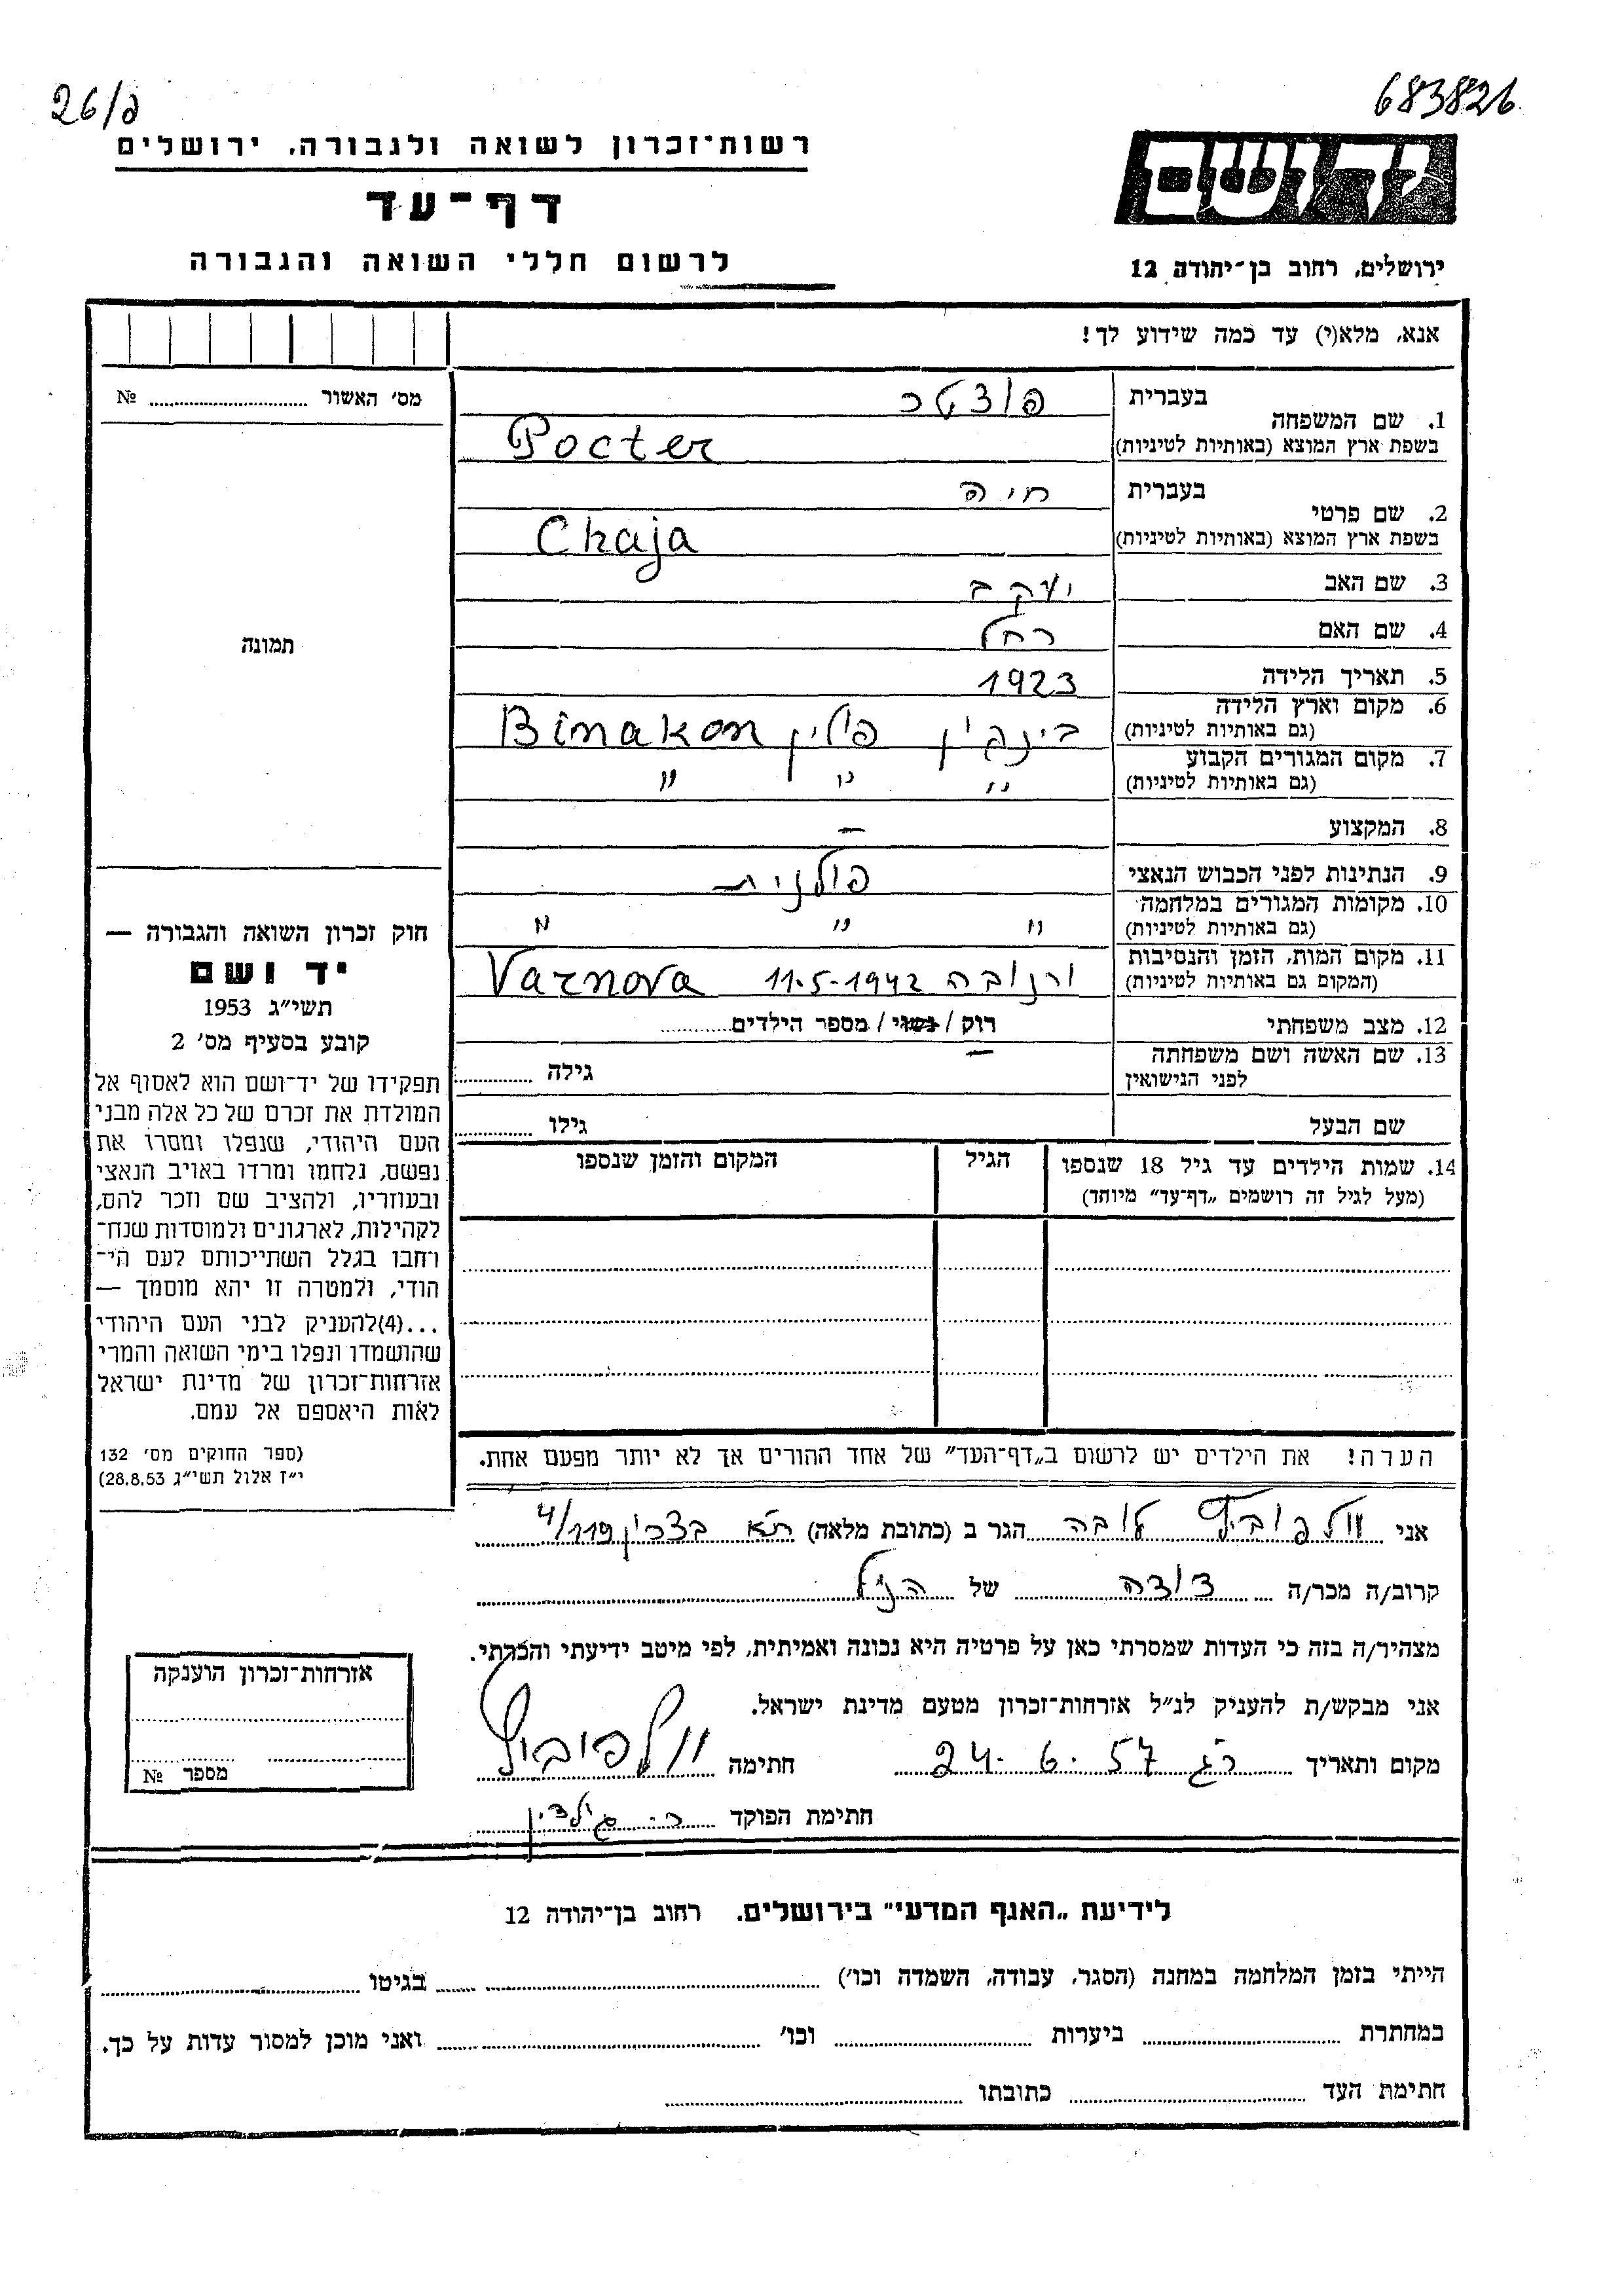 26/ג
683826
רשות־זכרון לשואה ולגבורה, ירושלים
דף־עד
לרשום חללי השואה והגבורה
יד ושם
ירושלים, רחוב בן־יהודה 12
אנא, מלא(י) עד כמה שידוע לך!
מס׳ האשור № 
1. שם המשפחה בעברית פוצטר
בשפת ארץ המוצא (באותיות לטיניות) Pocter
2. שם פרטי בעברית חיה
בשפת ארץ המוצא (באותיות לטיניות) Chaja
3. שם האב יעקב
4. שם האם רחל
5. תאריך הלידה 1923
6. מקום וארץ הלידה
(גם באותיות לטיניות) פולין Binakon
7. מקום המגורים הקבוע
(גם באותיות לטיניות) " " "
8. המקצוע —
9. הנתינות לפני הכבוש הנאצי פולנית
10. מקומות המגורים במלחמה
(גם באותיות לטיניות) " " "
11. מקום המות, הזמן והנסיבות
(המקום גם באותיות לטיניות) ורנובה 11.5.1942 Varnova
12. מצב משפחתי רוק / נשוי / מספר הילדים
13. שם האשה ושם משפחתה — גילה
לפני הנישואין
שם הבעל גילו
14. שמות הילדים עד גיל 18 שנספו הגיל המקום והזמן שנספו
(מעל לגיל זה רושמים „דף־עד" מיוחד)
הערה! את הילדים יש לרשום ב„דף־העד" של אחד ההורים אך לא יותר מפעם אחת.
תמונה
חוק זכרון השואה והגבורה —
יד ושם
תשי״ג 1953
קובע בסעיף מס׳ 2
תפקידו של יד־ושם הוא לאסוף אל
המולדת את זכרם של כל אלה מבני
העם היהודי, שנפלו ומסרו את
נפשם, נלחמו ומרדו באויב הנאצי
ובעוזריו, ולהציב שם וזכר להם,
לקהילות, לארגונים ולמוסדות שנח־
רחבו בגלל השתייכותם לעם הי־
הודי, ולמטרה זו יהא מוסמך —
...(4)להעניק לבני העם היהודי
שהושמדו ונפלו בימי השואה והמרי
אזרחות־זכרון של מדינת ישראל
לאות היאספם אל עמם.
(ספר החוקים מס׳ 132
י״ז אלול תשי״ג 28.8.53)
אני וולפוביץ טובה הגר ב (כתובת מלאה) ת״א בצרון 119/4
קרוב/ה מכר/ה דודה של הנ״ל
מצהיר/ה בזה כי העדות שמסרתי כאן על פרטיה היא נכונה ואמיתית, לפי מיטב ידיעתי והכרתי.
אני מבקש/ת להעניק לנ״ל אזרחות־זכרון מטעם מדינת ישראל.
מקום ותאריך רג 24.6.57 חתימה וולפוביץ
חתימת הפוקד
אזרחות־זכרון הוענקה
מספר №
לידיעת „האגף המדעי" בירושלים. רחוב בן־יהודה 12
הייתי בזמן המלחמה במחנה (הסגר, עבודה, השמדה וכו׳) בגיטו
במחתרת ביערות וכו׳ ואני מוכן למסור עדות על כך.
חתימת העד כתובתו